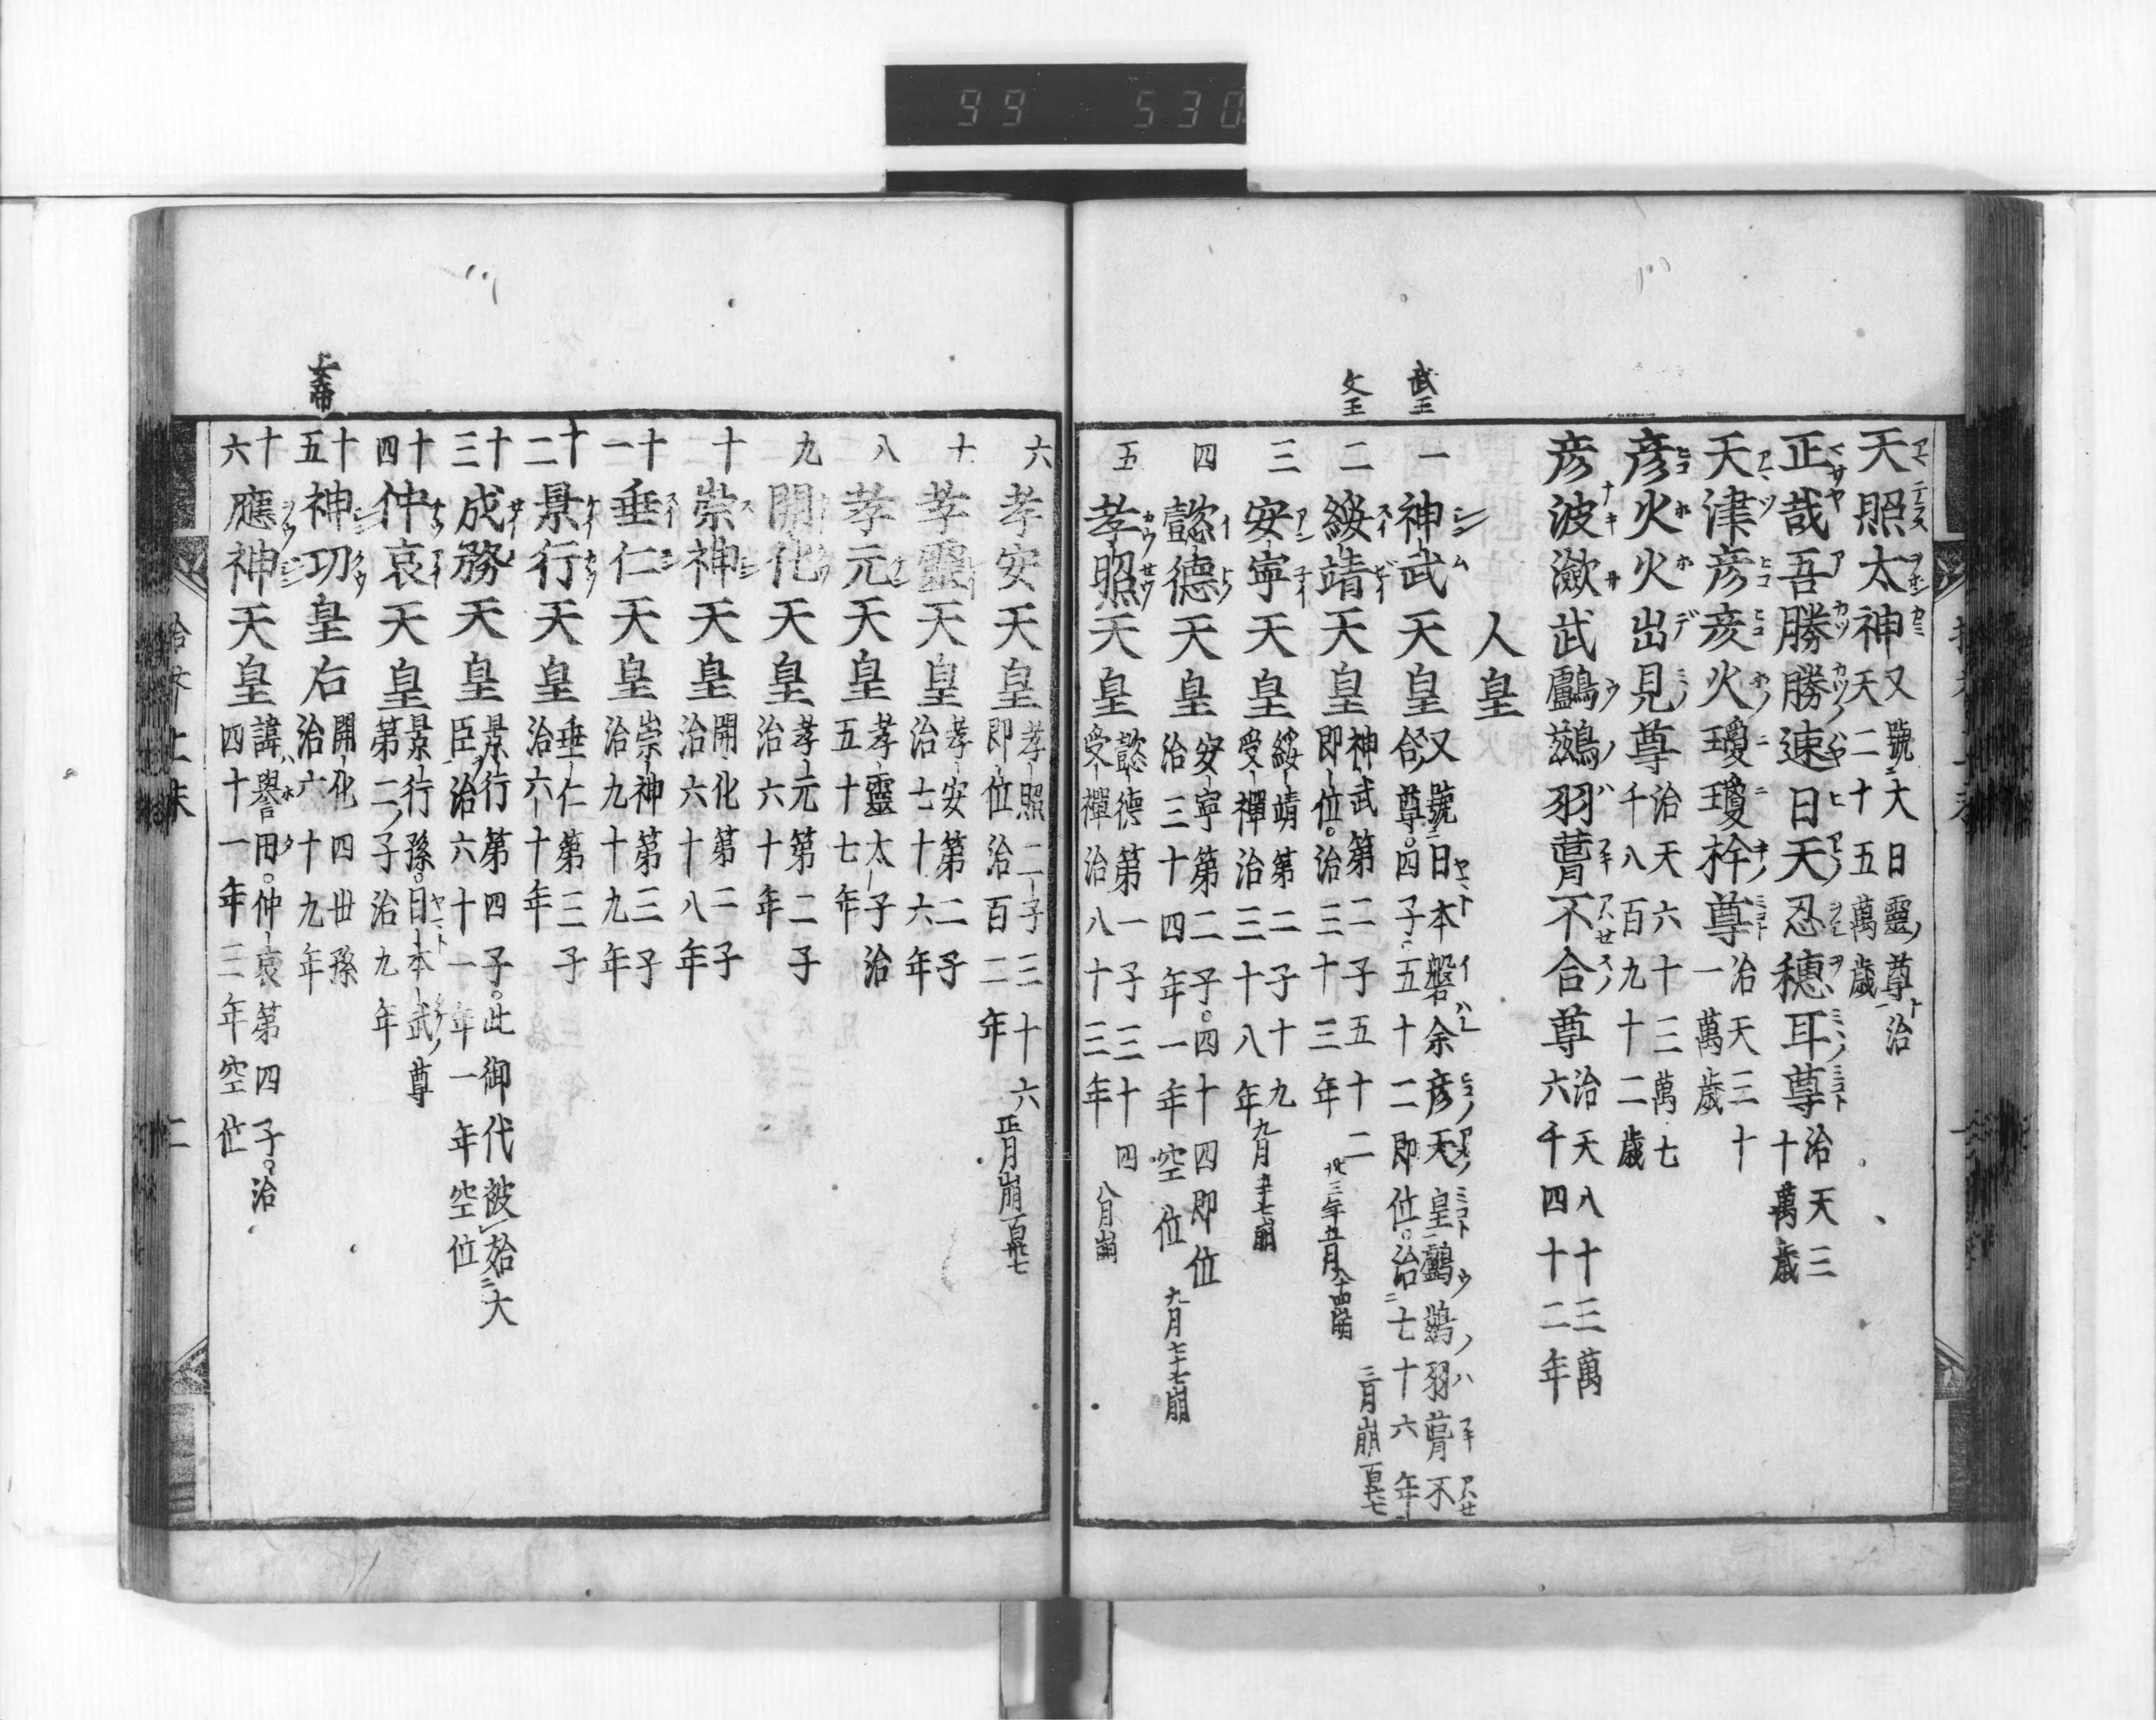 99 530
天照太神又號大日靈尊治
天二十五萬歳
正哉吾勝勝速日天忍穗耳尊治天三
十萬歳
天津彦彦火瓊瓊杵尊治天三十
一萬歳
彦火火出見尊治天六十三萬七
千八百九十二歳
彦波瀲武鸕鷀羽葺不合尊治天八十三萬
六千四十二年
人皇
武王
一 神武天皇又號日本磐余彦天皇鸕鷀羽葺不
合尊四子五十二即位治七十六年
三月崩
文王
二 綏靖天皇神武第二子五十二
即位治三十三年
三年五月
三 安寧天皇綏靖第二子十九
受禪治三十八年
九月
四 懿德天皇安寧第二子四十四即位
治三十四年一年空位
九月七十七崩
五 孝照天皇懿德第一子三十四
受禪治八十三年
八月崩
六 孝安天皇孝照二子三十六
即位治百二年
正月崩
孝靈天皇孝安第二子
治七十六年
八 孝元天皇孝靈太子治
五十七年
九 開化天皇孝元第二子
治六十年
十 崇神天皇開化第二子
治六十八年
十一 垂仁天皇崇神第三子
治九十九年
十二 景行天皇垂仁第三子
治六十年
十三 成務天皇景行第四子此御代被始大
臣治六十一年一年空位
十四 仲哀天皇景行孫日本武尊
第二子治九年
女帝
十五 神功皇右開化四世孫
治六十九年
十六 應神天皇諱譽田仲哀第四子治
四十一年三年空位
上末 二